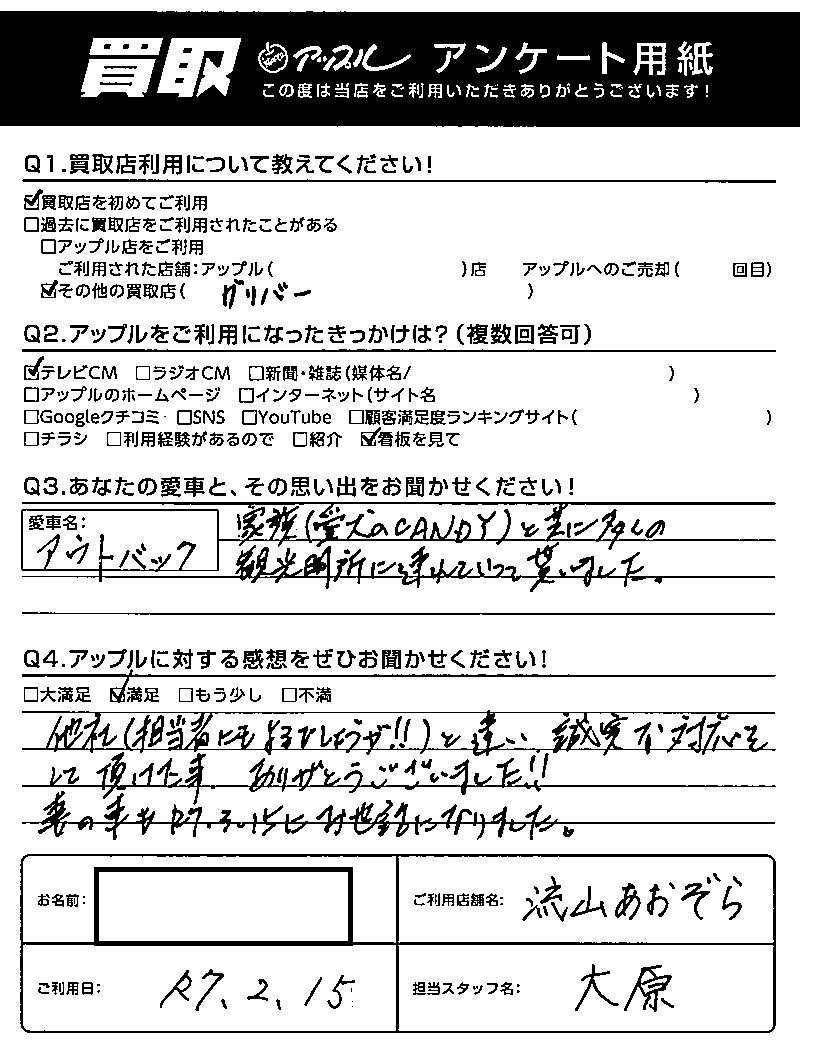 買取 アップル アンケート用紙
この度は当店をご利用いただきありがとうございます!
Q1.買取店利用について教えてください!
☑買取店を初めてご利用
□過去に買取店をご利用されたことがある
□アップル店をご利用
ご利用された店舗:アップル( )店 アップルへのご売却( 回目)
☑その他の買取店( ガリバー )
Q2.アップルをご利用になったきっかけは?(複数回答可)
☑テレビCM □ラジオCM □新聞・雑誌(媒体名/ )
□アップルのホームページ □インターネット(サイト名 )
□Googleクチコミ □SNS □YouTube □顧客満足度ランキングサイト( )
□チラシ □利用経験があるので □紹介 ☑看板を見て
Q3.あなたの愛車と、その思い出をお聞かせください!
愛車名:
アウトバック
家族(愛犬のCANDY)と共に多くの
観光名所に連れていって貰いました。
Q4.アップルに対する感想をぜひお聞かせください!
□大満足 ☑満足 □もう少し □不満
他社(担当者にもよるでしょうが!!)と違い、誠実な対応を
して頂けた事、ありがとうございました!!
妻の車もR7.3.15にお世話になりました。
お名前:
ご利用店舗名: 流山あおぞら
ご利用日: R7.2.15
担当スタッフ名: 大原